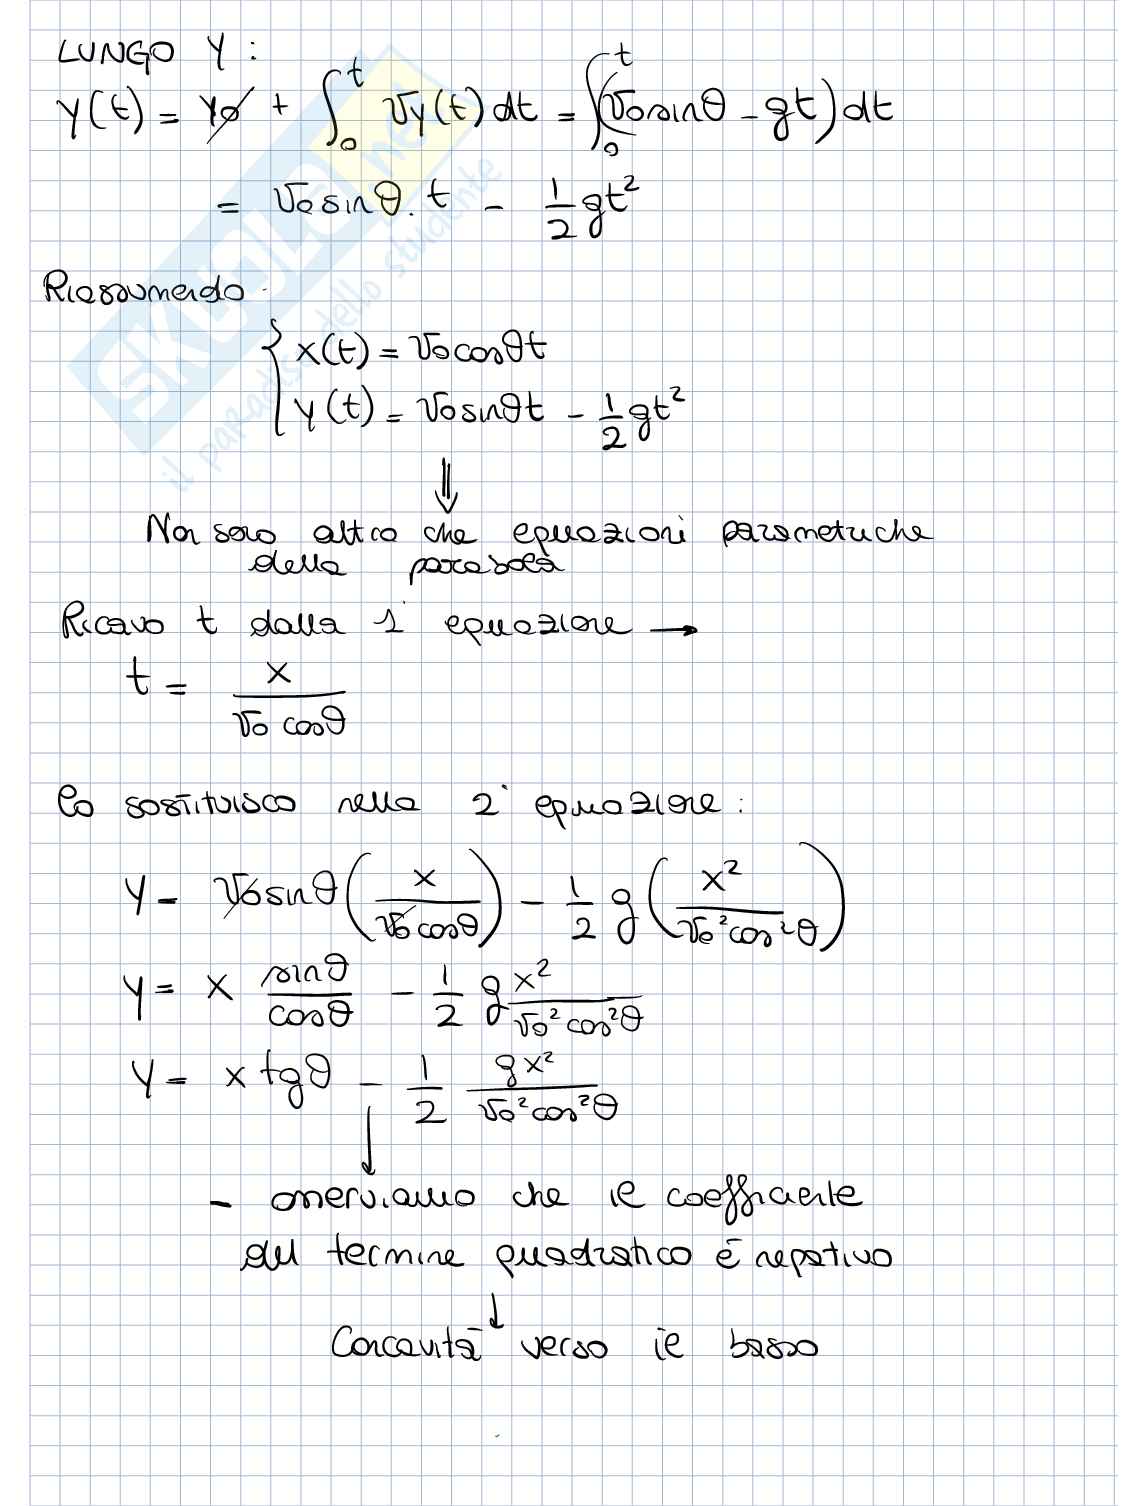 LUNGO Y :
y(t) = y0 + ∫₀ᵗ vy(t) dt = ∫₀ᵗ (v0 sinθ - gt) dt
= v0 sinθ . t - 1/2 gt²
Riassumendo .
{ x(t) = v0 cosθt
{ y(t) = v0 sinθt - 1/2 gt²
⇓
Non sono altro che equazioni parametriche
della parabola
Ricavo t dalla 1ª equazione →
t = x / (v0 cosθ)
Lo sostituisco nella 2ª equazione :
y = v0 sinθ (x / (v0 cosθ)) - 1/2 g (x² / (v0² cos²θ))
y = x sinθ/cosθ - 1/2 g x² / (v0² cos²θ)
y = x tgθ - 1/2 gx² / (v0² cos²θ)
↓
- osserviamo che il coefficiente
del termine quadratico è negativo
↓
Concavità verso il basso
SKUOLA.net
il paradiso dello studente